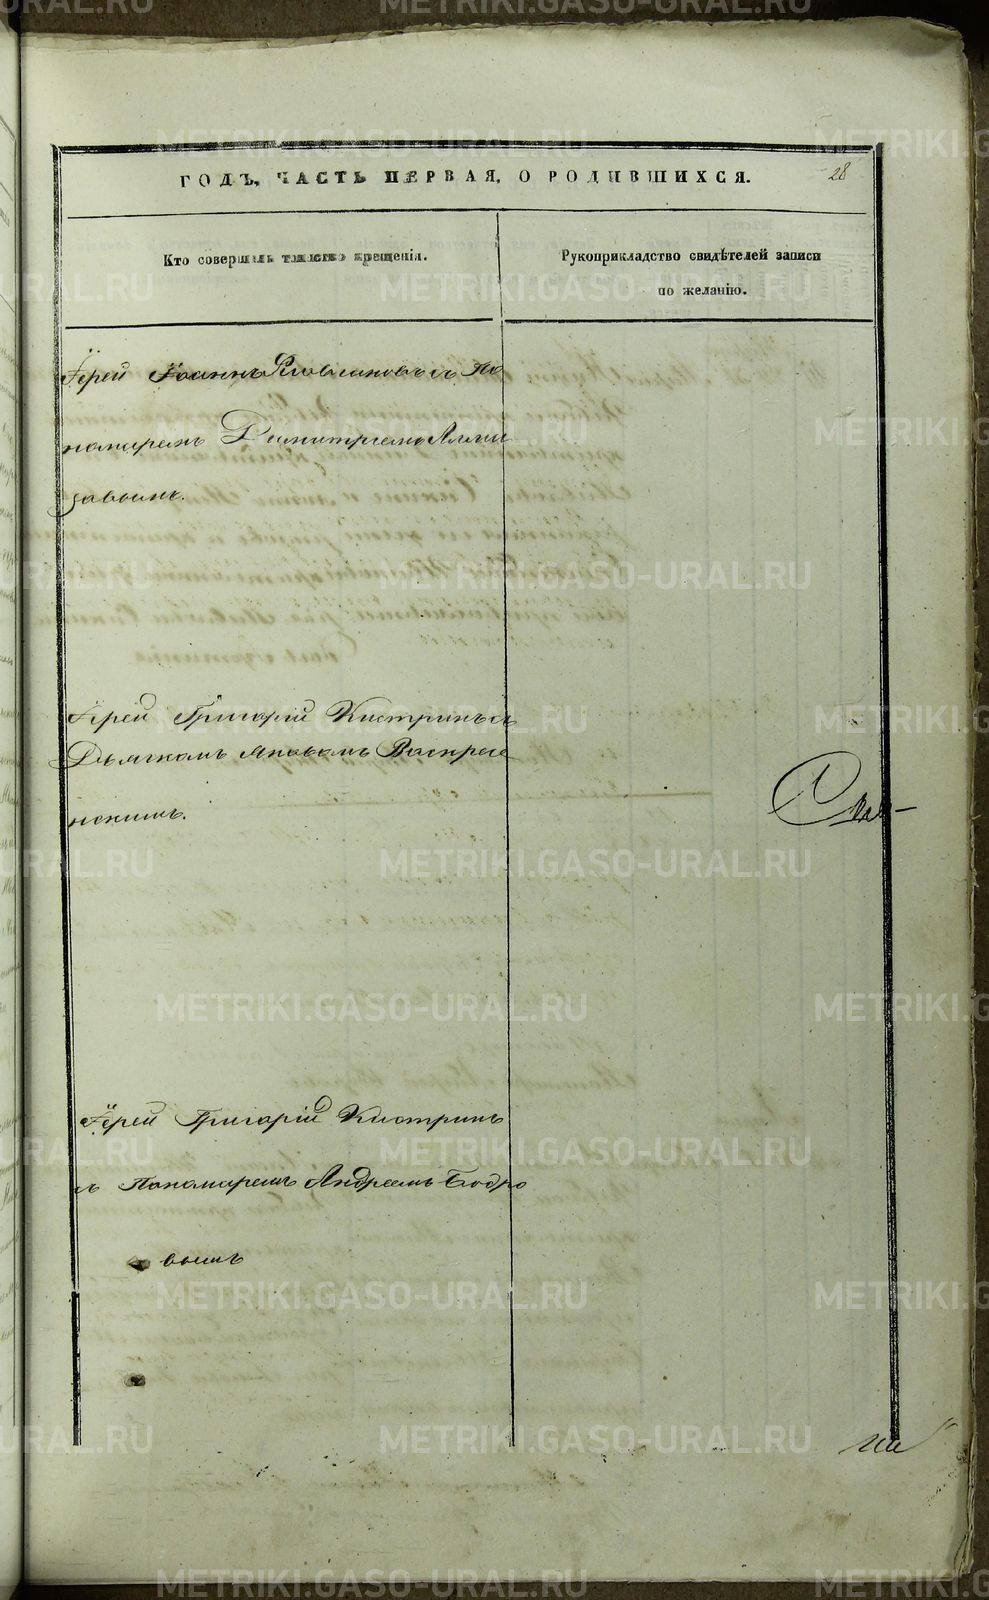 METRIKI.GASO-URAL.RU
ГОДЪ, ЧАСТЬ ПЕРВАЯ, О РОДИВШИХСЯ.
28
Кто совершалъ таинство крещенія.
Рукоприкладство свидѣтелей записи
по желанію.
Іерей Іоаннъ съ По
номаремъ Димитріемъ
Іерей Григорій Кистринъ съ
Дьячкомъ Яковомъ Воскресе
нскимъ.
Іерей Григорій Кистринъ
съ Пономаремъ Андреемъ Бодро
вымъ